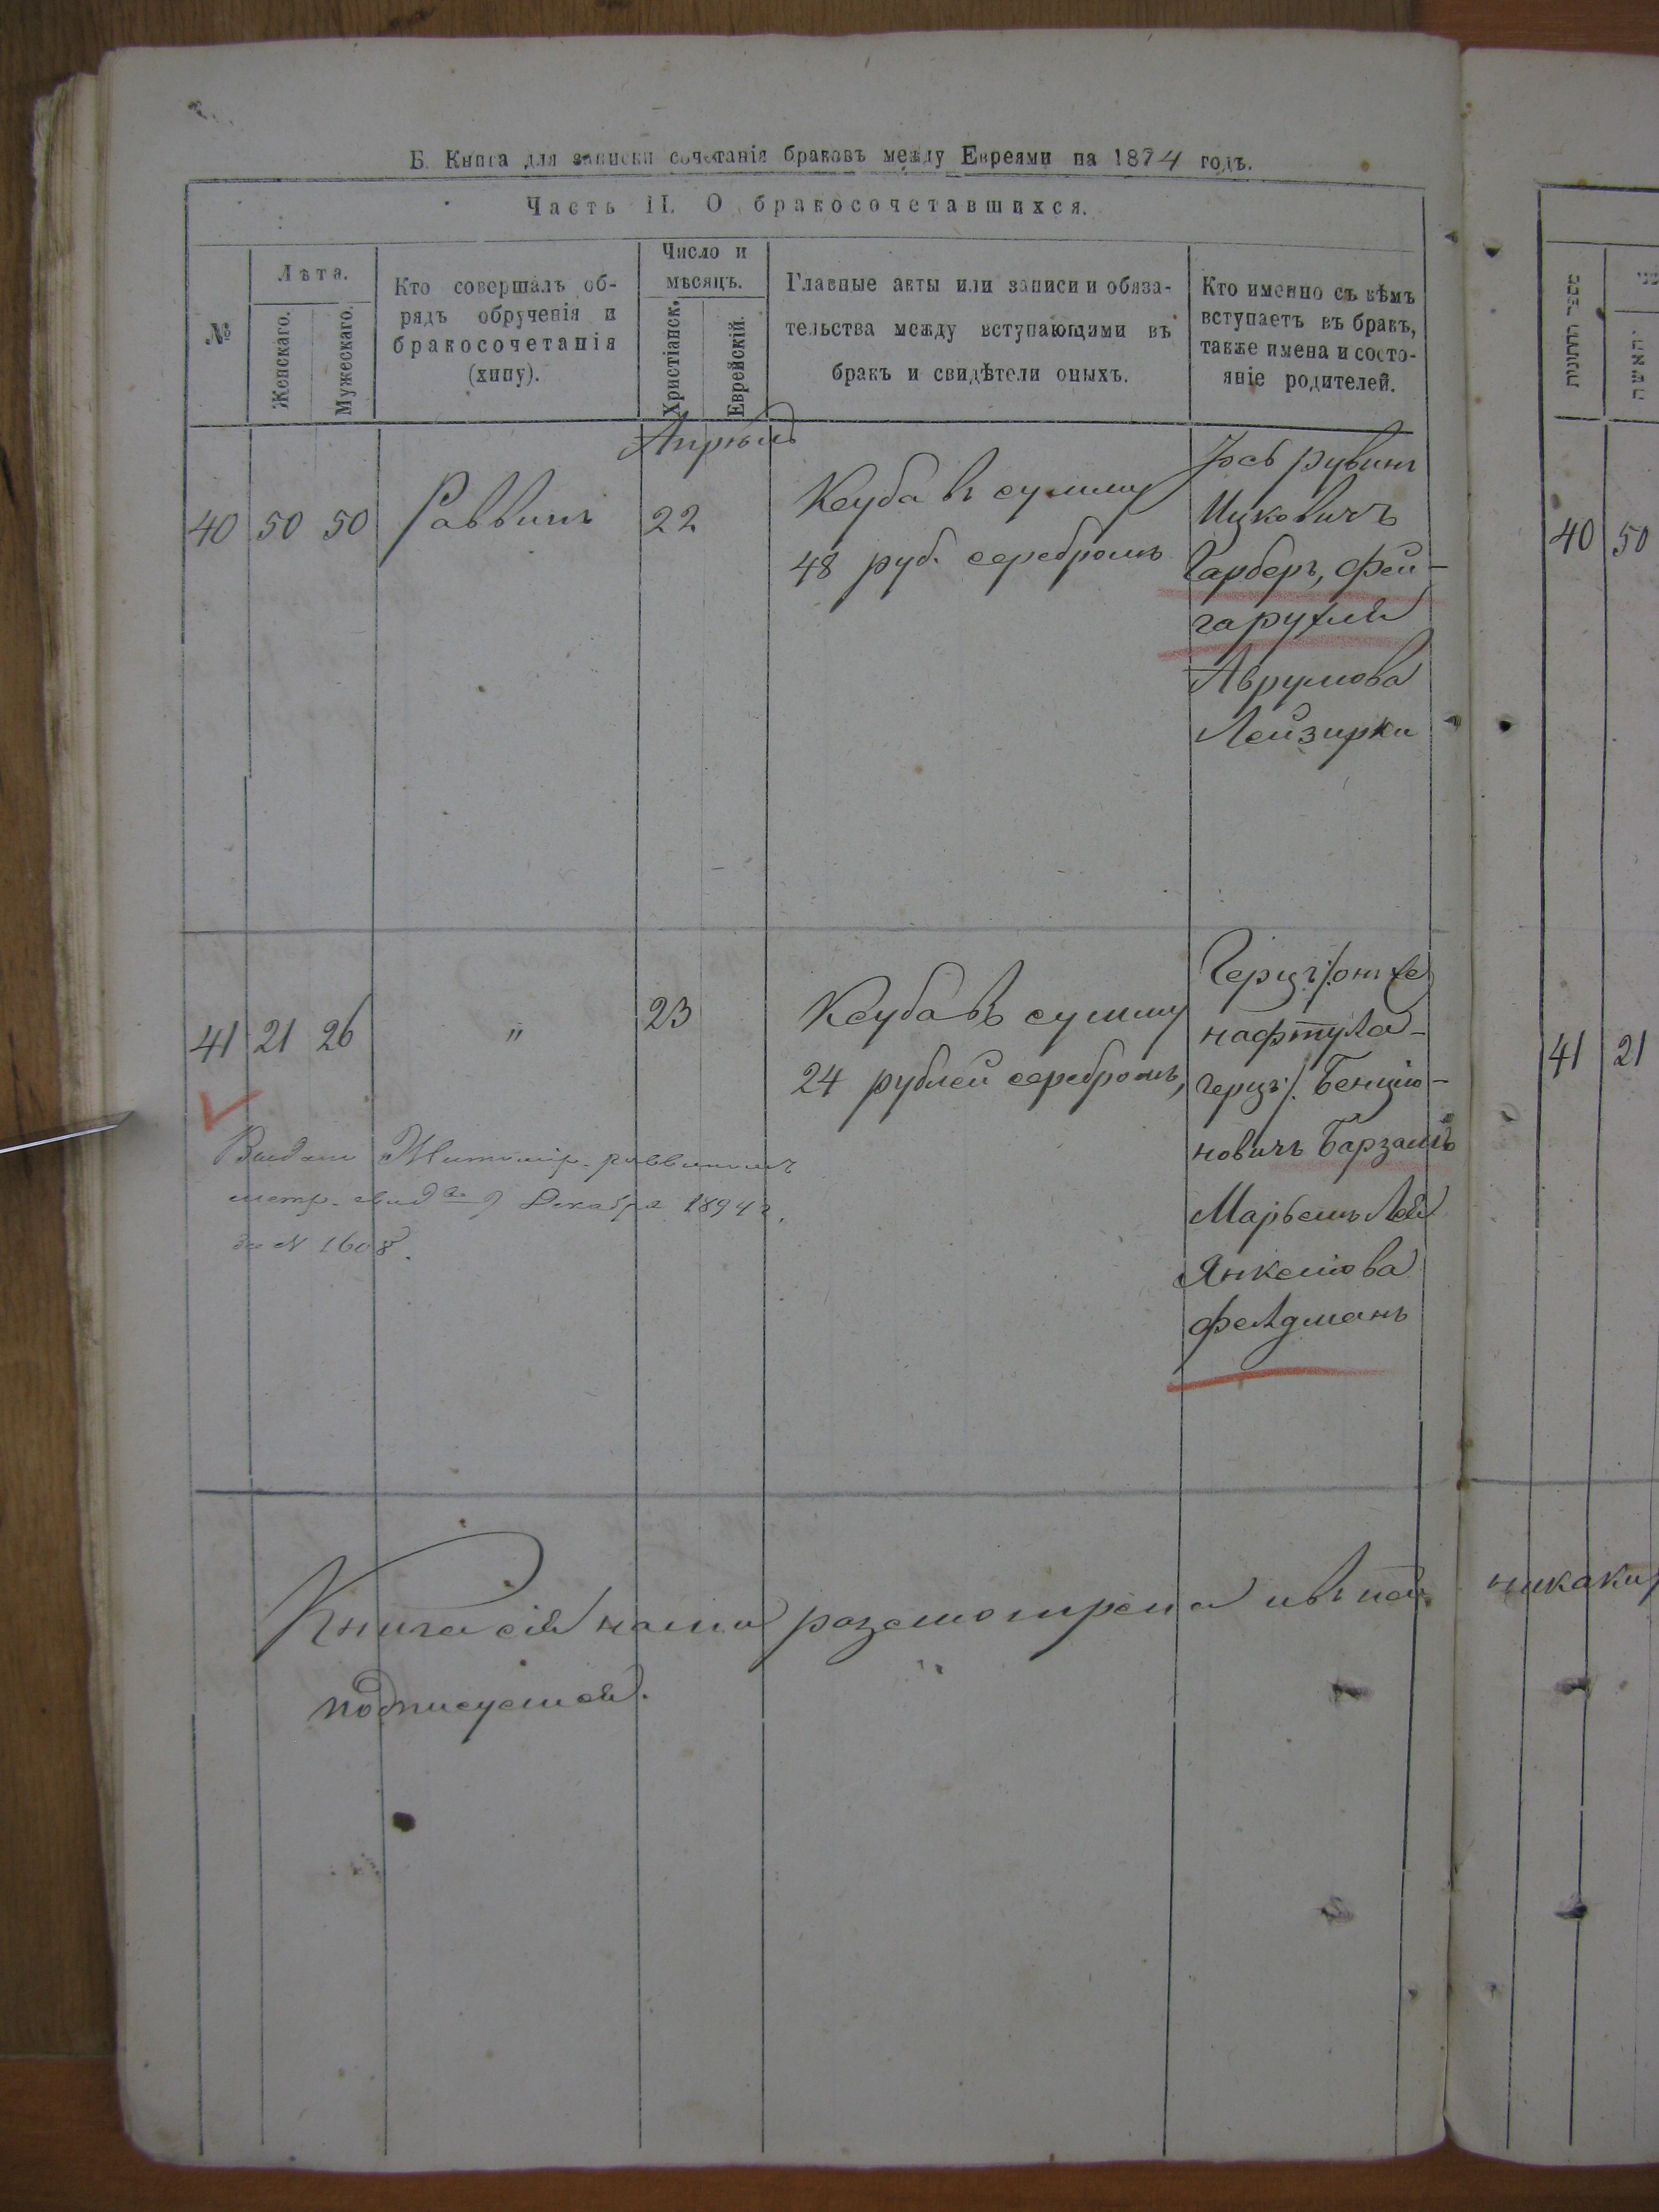 Б. Книга для записки сочетанія браковъ между Евреями на 1874 годъ.
Часть II. О бракосочетавшихся.
№
Лѣта.
Женскаго.
Мужескаго.
Кто совершалъ об-
рядъ обрученія и
бракосочетанія
(хипу).
Число и
мѣсяцъ.
Христіанск.
Еврейскій.
Главные акты или записи и обяза-
тельства между вступающими въ
бракъ и свидѣтели оныхъ.
Кто именно съ кѣмъ
вступаетъ въ бракъ,
также имена и состо-
яніе родителей.
Апрѣль
40 50 50 Раввинъ 22
Ксуба въ сумму
48 руб. серебромъ
Іось рувинъ
Ицковичъ
Гарберъ, Фей-
га рухля
Аврумова
Лейзирки
41 21 26 " 23
Ксуба въ сумму
24 рублей серебромъ,
Герцъ /: онъ же
нафтула-
герцъ :/ Бенціо-
новичъ Барзамъ
Марьемъ Лея
Янкелиова
Фелдманъ
Выдано Житомір. раввиномъ
метр. свид во 9 Декабря 1894 г.
за N 1608.
Книга сія нами разсмотрена и въ ней
подписуемся.
מספר החתונות
האשה
40 50
41 21